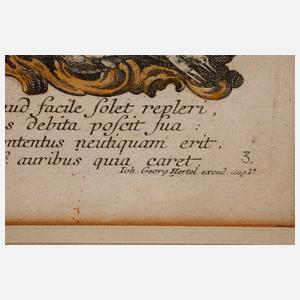 ud facile solet repleri,
s debita poscit sua:
ntentus neutiquam erit,
auribus quia caret. 3.
Ioh. Georg Hertel excud. Aug. V.